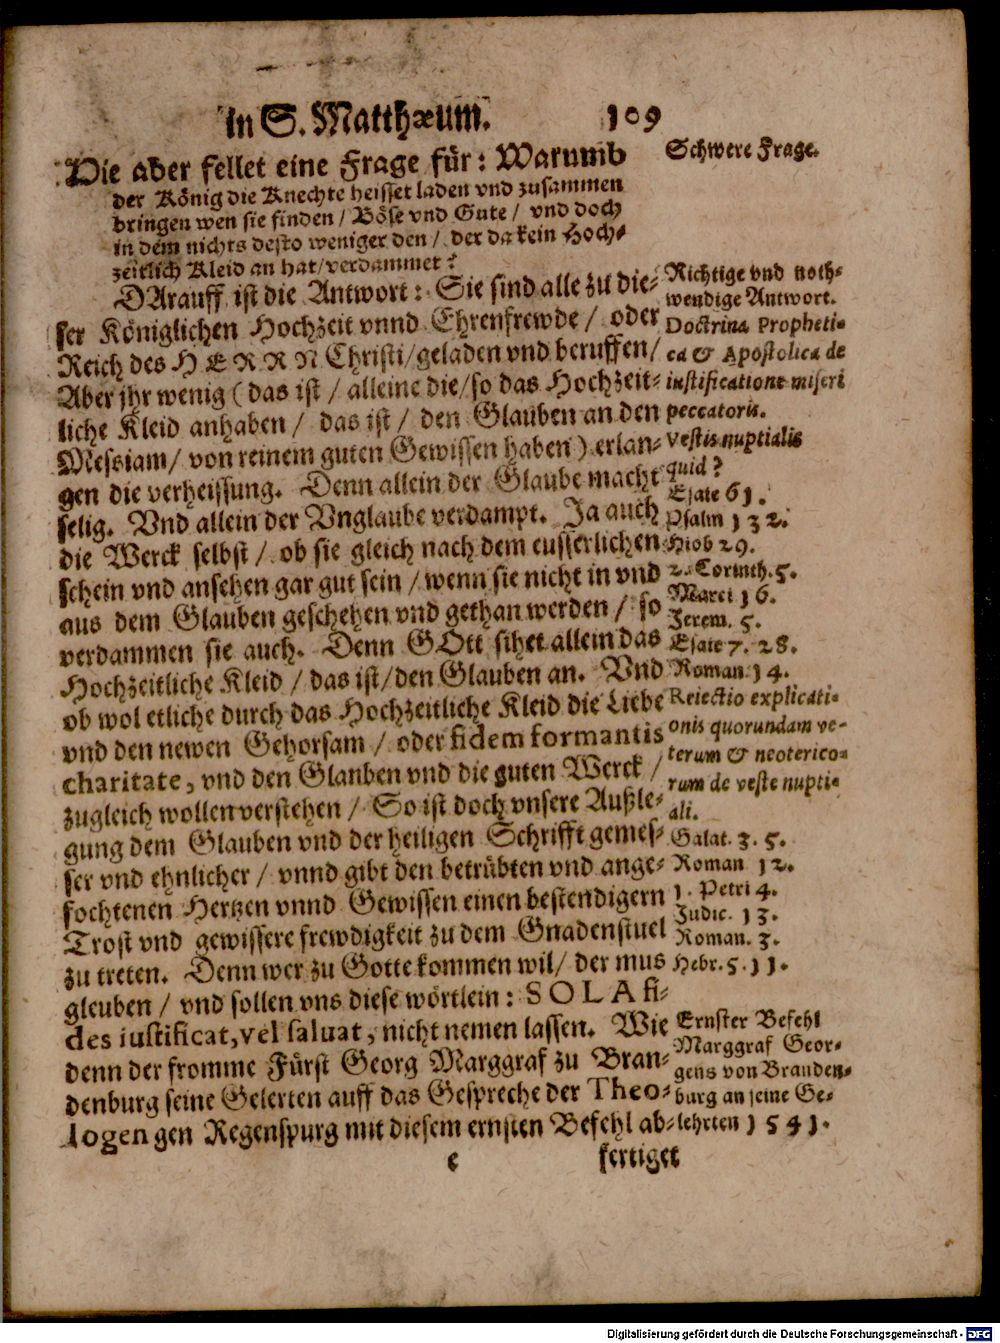 in S. Matthæum. 109
Hie aber fellet eine Frage für: Warumb
der König die Knechte heisset laden vnd zusammen
bringen wen sie finden / Böse vnd Gute / vnd doch
in dem nichts desto weniger den / der da kein Hoch-
zeitlich Kleid an hat/verdammet?
DArauff ist die Antwort: Sie sind alle zu die-
ser Königlichen Hochzeit vnnd Ehrenfrewde / oder
Reich des HERRN Christi/geladen vnd beruffen/
Aber jhr wenig (das ist / alleine die/so das Hochzeit-
liche Kleid anhaben / das ist / den Glauben an den
Messiam/ von reinem guten Gewissen haben) erlan-
gen die verheissung. Denn allein der Glaube macht
selig. Vnd allein der Vnglaube verdampt. Ja auch
die Werck selbst / ob sie gleich nach dem eusserlichen
schein vnd ansehen gar gut sein / wenn sie nicht in vnd
aus dem Glauben geschehen vnd gethan werden / so
verdammen sie auch. Denn GOtt sihet allein das
Hochzeitliche Kleid / das ist/den Glauben an. Vnd
ob wol etliche durch das Hochzeitliche Kleid die Liebe
vnd den newen Gehorsam / oder fidem formantis
charitate, vnd den Glauben vnd die guten Werck /
zugleich wollen verstehen / So ist doch vnsere Außle-
gung dem Glauben vnd der heiligen Schrifft gemes-
ser vnd ehnlicher / vnnd gibt den betrübten vnd ange-
fochtenen Hertzen vnnd Gewissen einen bestendigern
Trost vnd gewissere frewdigkeit zu dem Gnadenstuel
zu treten. Denn wer zu Gotte kommen wil/ der mus
gleuben / vnd sollen vns diese wörtlein: SOLA fi-
des iustificat, vel saluat, nicht nemen lassen. Wie
denn der fromme Fürst Georg Marggraf zu Bran-
denburg seine Gelerten auff das Gespreche der Theo-
logen gen Regenspurg mit diesem ernsten Befehl ab-
e fertiget
Schwere Frage.
Richtige vnd noth-
wendige Antwort.
Doctrina Propheti-
ca & Apostolica de
iustificatione miseri
peccatoris.
Vestis nuptialis
quid?
Esaie 61.
Psalm 132.
Hiob 29.
2. Corinth. 5.
Marci 16.
Jerem. 5.
Esaie 7. 28.
Roman 14.
Reiectio explicati-
onis quorundam ve-
terum & neoterico-
rum de veste nupti-
ali.
Galat. 3. 5.
Roman 12.
1. Petri 4.
Judic. 13.
Roman. 3.
Hebr. 5. 11.
Ernster Befehl
Marggraf Geor-
gens von Branden-
burg an seine Ge-
lehrten 1541.
Digitalisierung gefördert durch die Deutsche Forschungsgemeinschaft - DFG